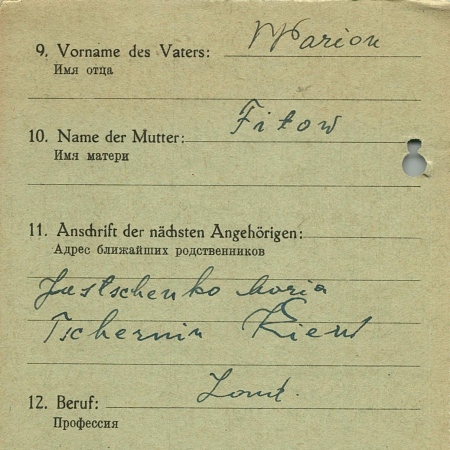 9. Vorname des Vaters: Marion
Имя отца
10. Name der Mutter: Fitow
Имя матери
11. Anschrift der nächsten Angehörigen:
Адрес ближайших родственников
Jastschenko Maria
Tschernin Kiew
12. Beruf: Landw.
Профессия